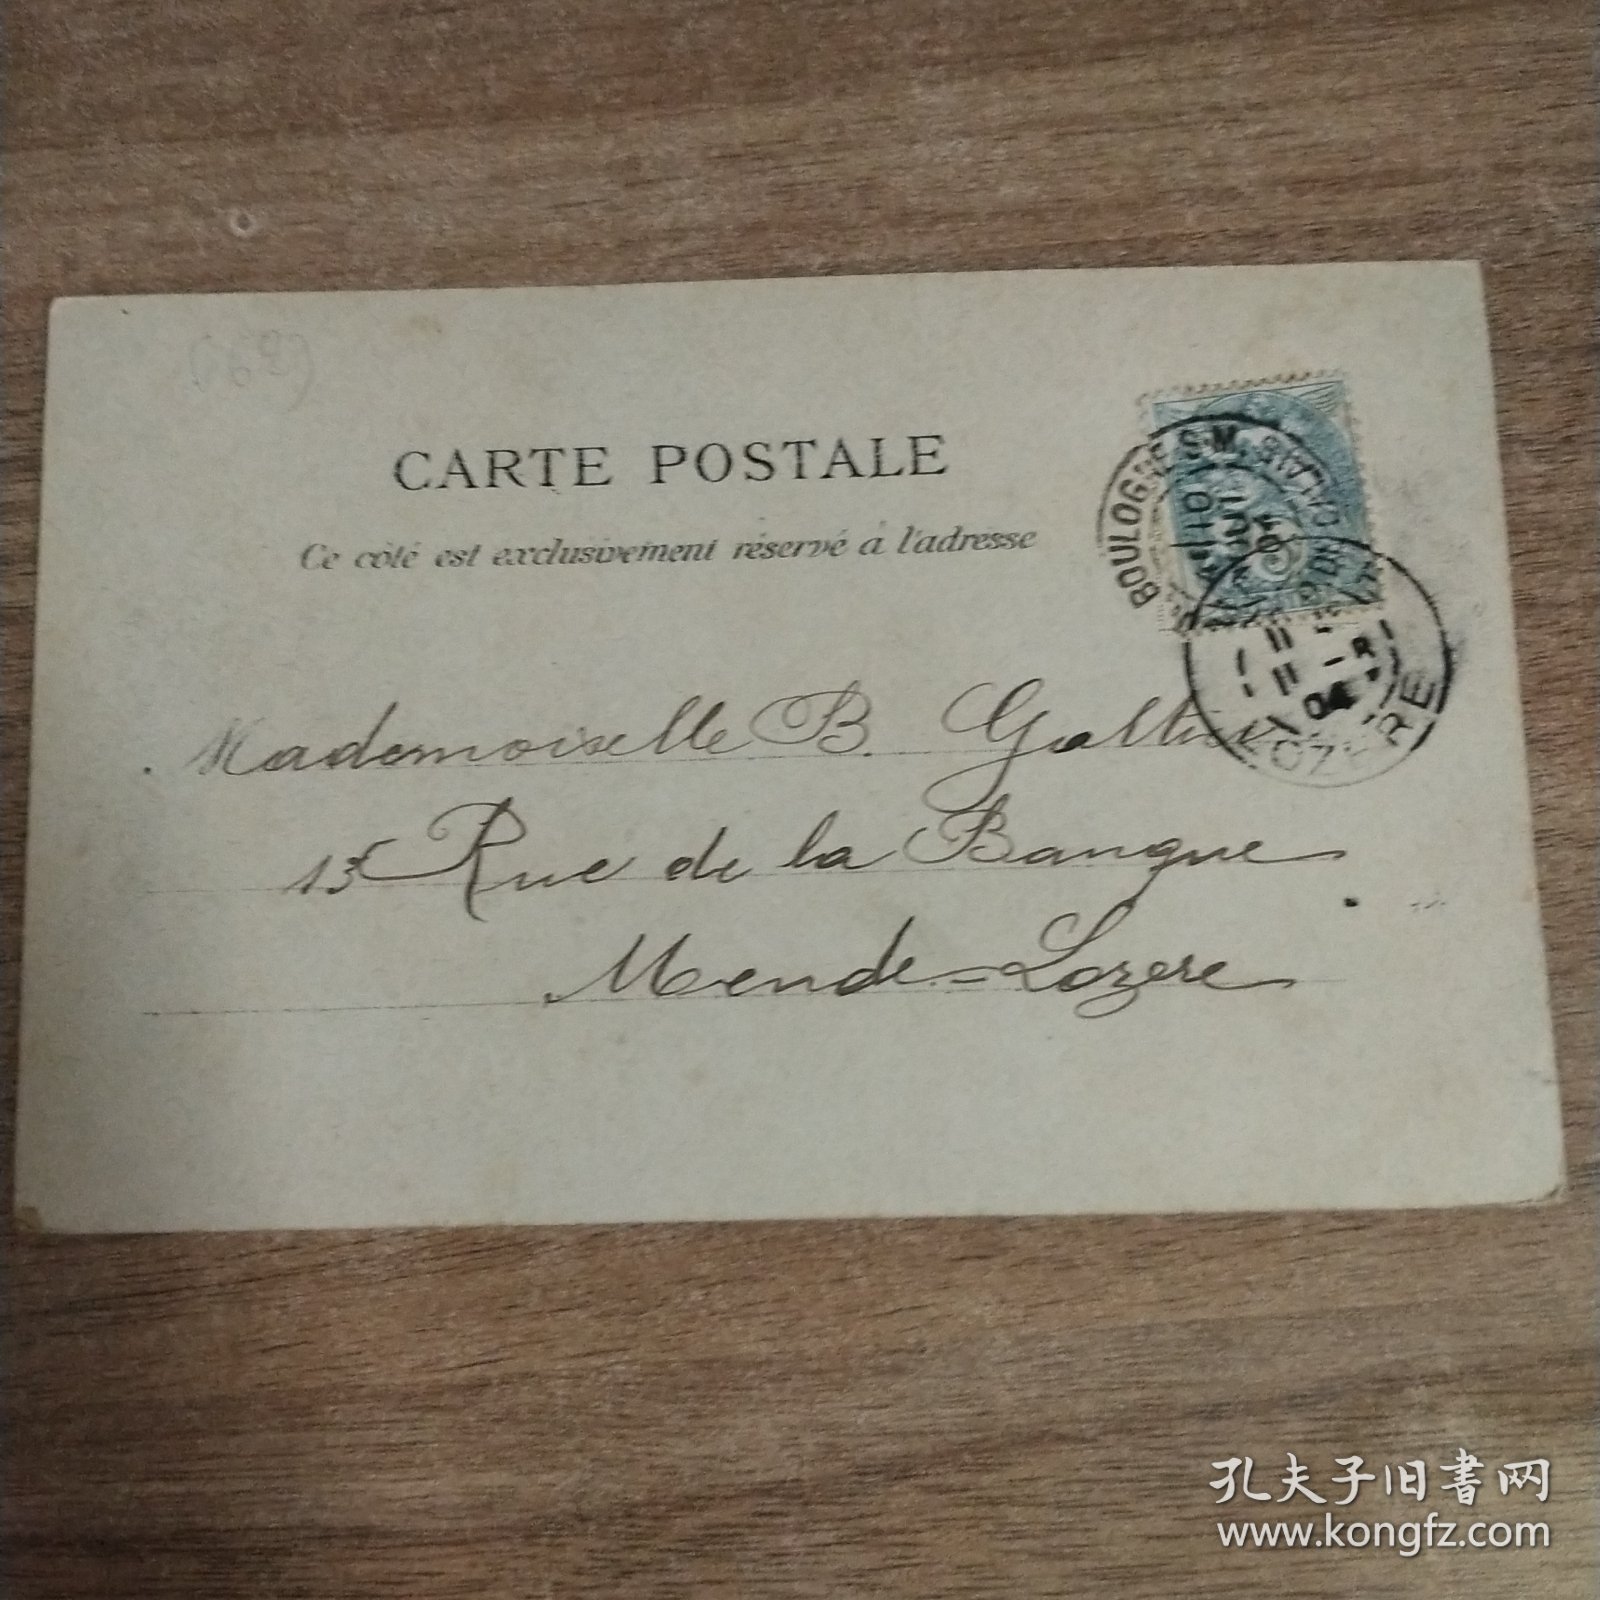 6689
CARTE POSTALE
Ce côté est exclusivement réservé à l'adresse
BOULOGNE S. M. CALAIS
LOZÈRE
Mademoiselle B.
13 Rue de la Banque
Mende = Lozere
孔夫子旧书网
www.kongfz.com